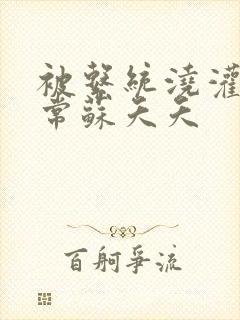 被繫統澆灌
常蘇天天
百舸爭流